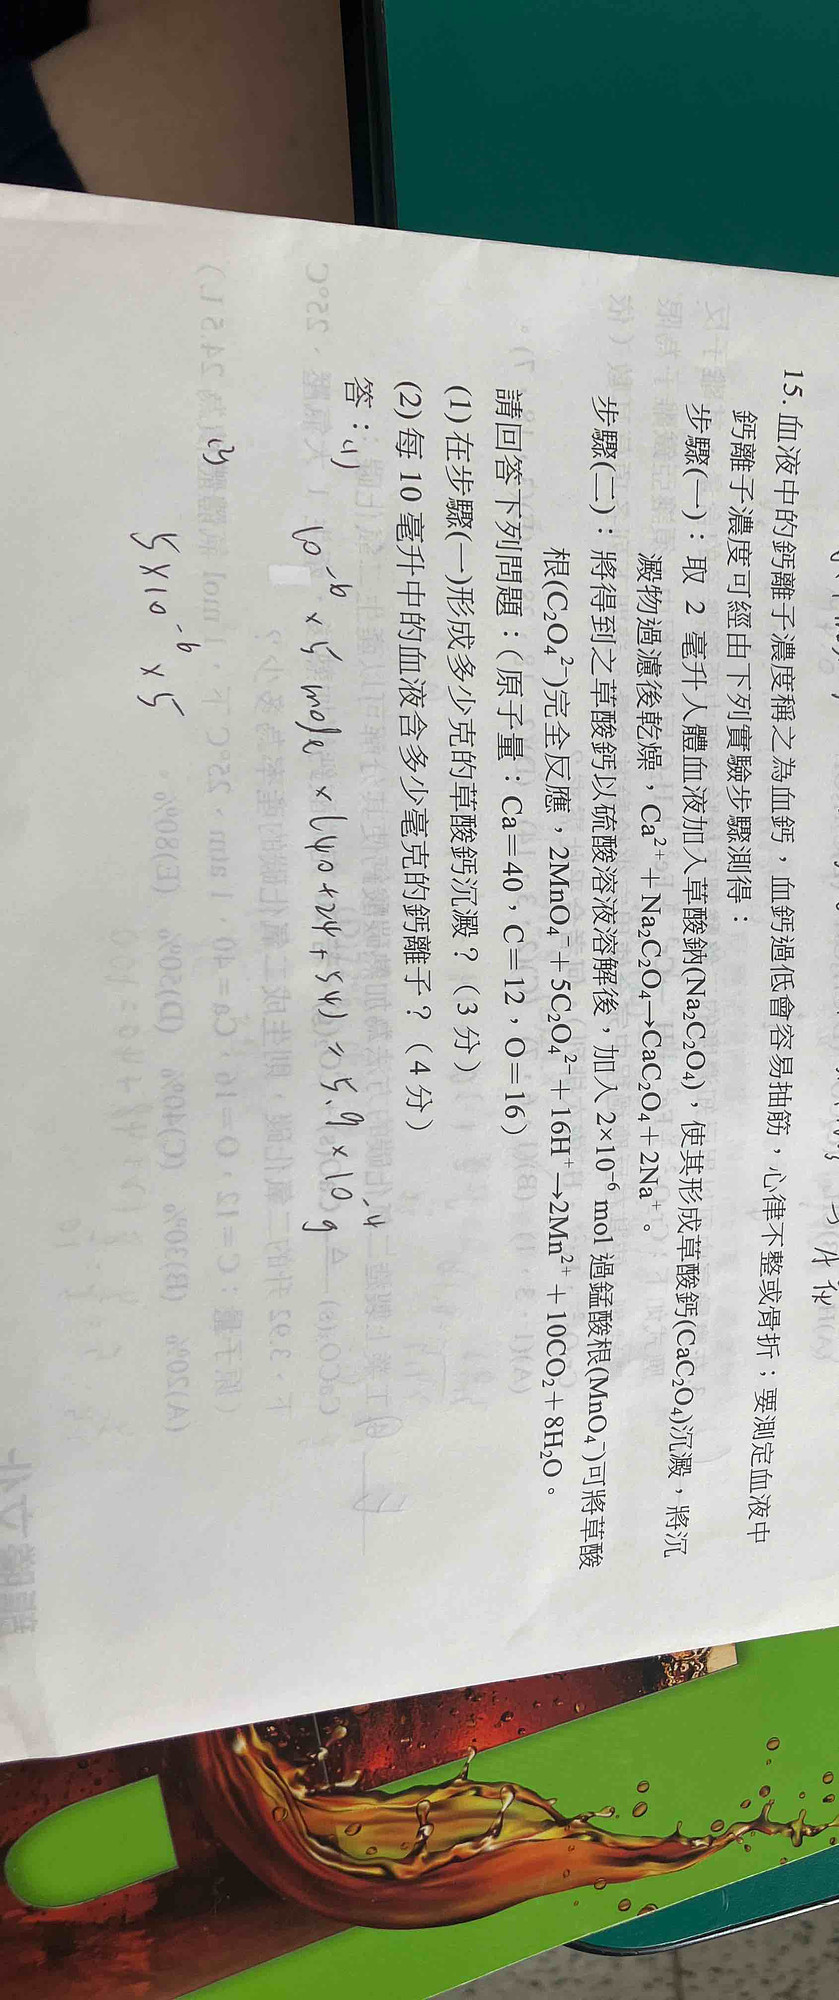 15. 血液中的鈣離子濃度稱之為血鈣，血鈣過低會容易抽筋，心律不整或骨折；要測定血液中
鈣離子濃度可經由下列實驗步驟測得：
步驟(一)：取 2 毫升人體血液加入草酸鈉(Na₂C₂O₄)，使其形成草酸鈣(CaC₂O₄)沉澱，將沉
澱物過濾後乾燥，Ca²⁺＋Na₂C₂O₄→CaC₂O₄＋2Na⁺。
步驟(二)：將得到之草酸鈣以硫酸溶液溶解後，加入 2×10⁻⁶ mol 過錳酸根(MnO₄⁻)可將草酸
根(C₂O₄²⁻)完全反應，2MnO₄⁻＋5C₂O₄²⁻＋16H⁺→2Mn²⁺＋10CO₂＋8H₂O。
請回答下列問題：(原子量：Ca＝40，C＝12，O＝16)
(1) 在步驟(一)形成多少克的草酸鈣沉澱？(3 分)
(2) 每 10 毫升中的血液含多少毫克的鈣離子？(4 分)
答：(1)
10⁻⁶ × 5 mole × (40+24+54) = 5.9 × 10⁻⁴ g
(2)
5×10⁻⁶ × 5